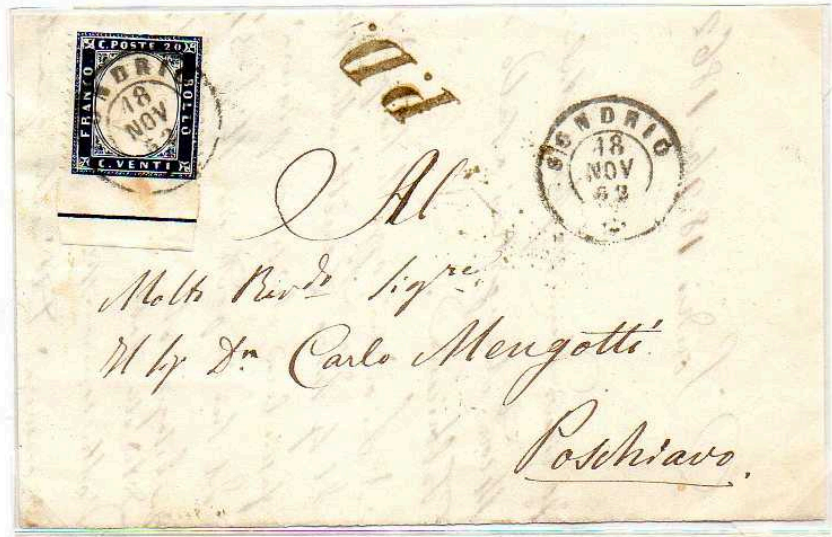 C. POSTE 20
FRANCO
BOLLO
C. VENTI
SONDRIO
18
NOV
62
P.D.
SONDRIO
18
NOV
62
Al
Molto Rev.do Sig.re
Il Sig.r D.n Carlo Mengotti
Poschiavo.